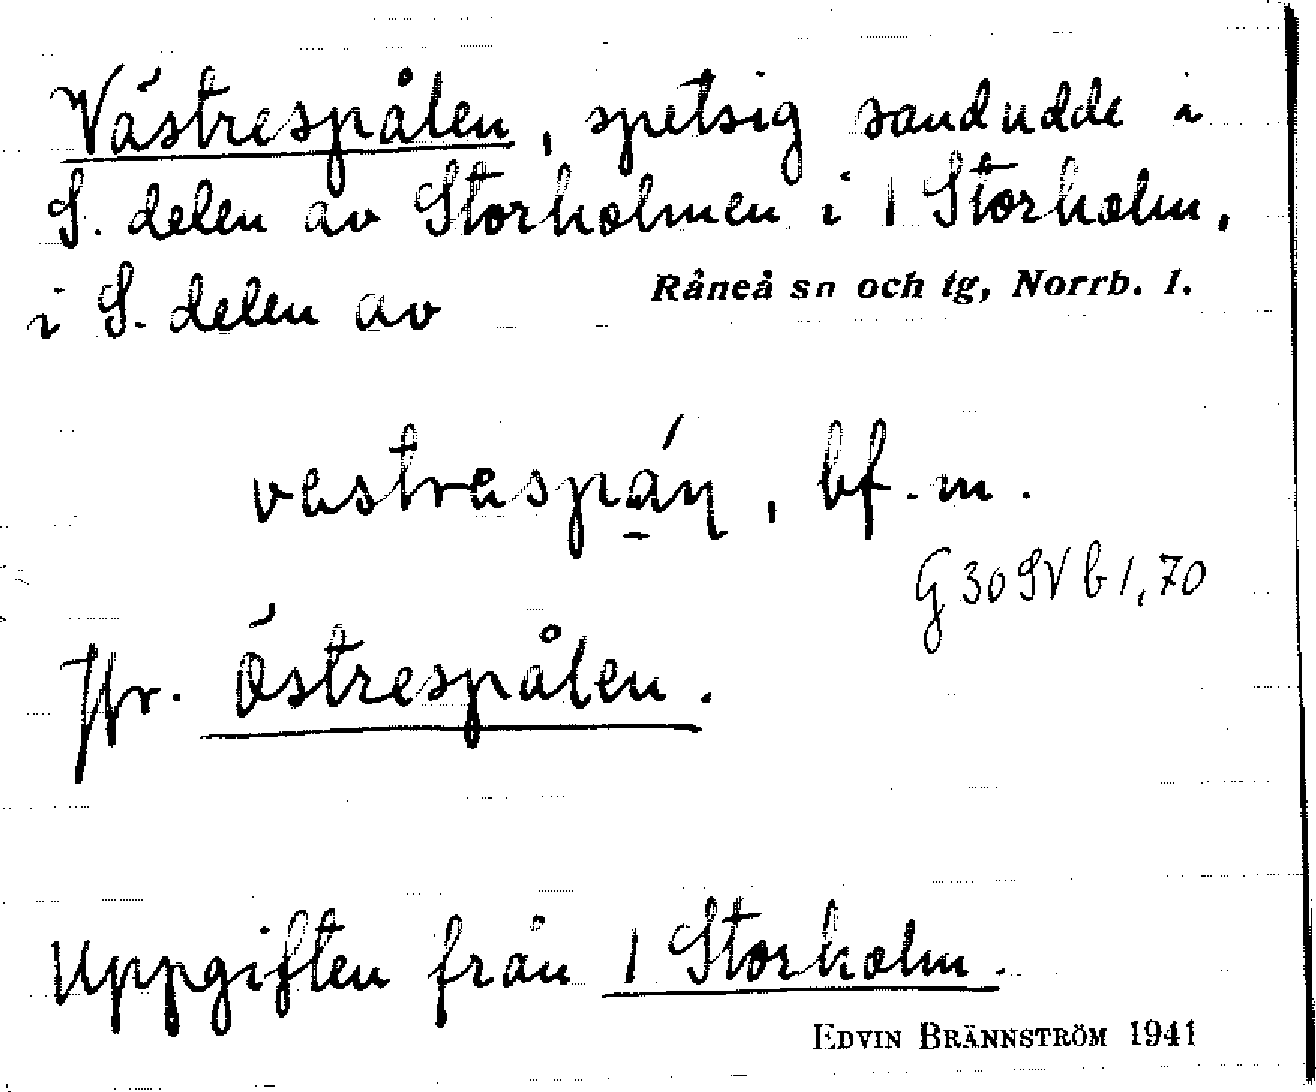 Västrespålen, spetsig sandudde i
S. delen av Storholmen i 1 Storholm,
i S. delen av Råneå sn och tg, Norrb. l.
vestrespáṇ, bf. m.
G 30 SV b 1, 70
Jfr. Östrespålen.
Uppgiften från 1 Storholm.
EDVIN BRÄNNSTRÖM 1941